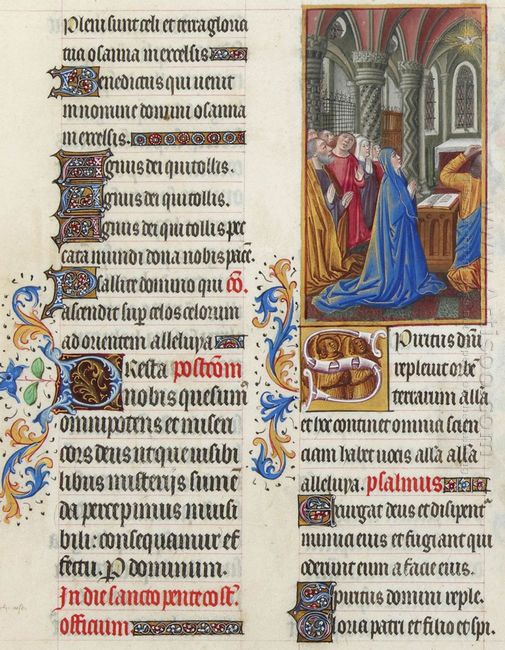 Pleni sunt celi et terra gloria
tua osanna in excelsis
Benedictus qui uenit
in nomine domini osanna
in excelsis.
Agnus dei qui tollis.
Agnus dei qui tollis.
Agnus dei qui tollis pec
cata mundi dona nobis pacē.
Psallite domino qui cō.
ascendit sup celos celorum
ad orientem alleluya
Presta postcom̄
nobis quesum̄
omnipotens et miseri
cors deus ut que uisibi
libus misterijs sumē
da percepimus inuisi
bili: consequamur ef
fectu. P dominum.
In die sancto pentecost.
officium
Spiritus dn̄i
repleuit orbē
terrarum alla
et hoc continet omnia scien
ciam habet uocis alla alla
alleluya. psalmus
Exurgat deus et dispent̄
inimici eius et fugiant qui
oderunt eum a facie eius.
Spiritus domini reple.
Gloria patri et filio et spi.